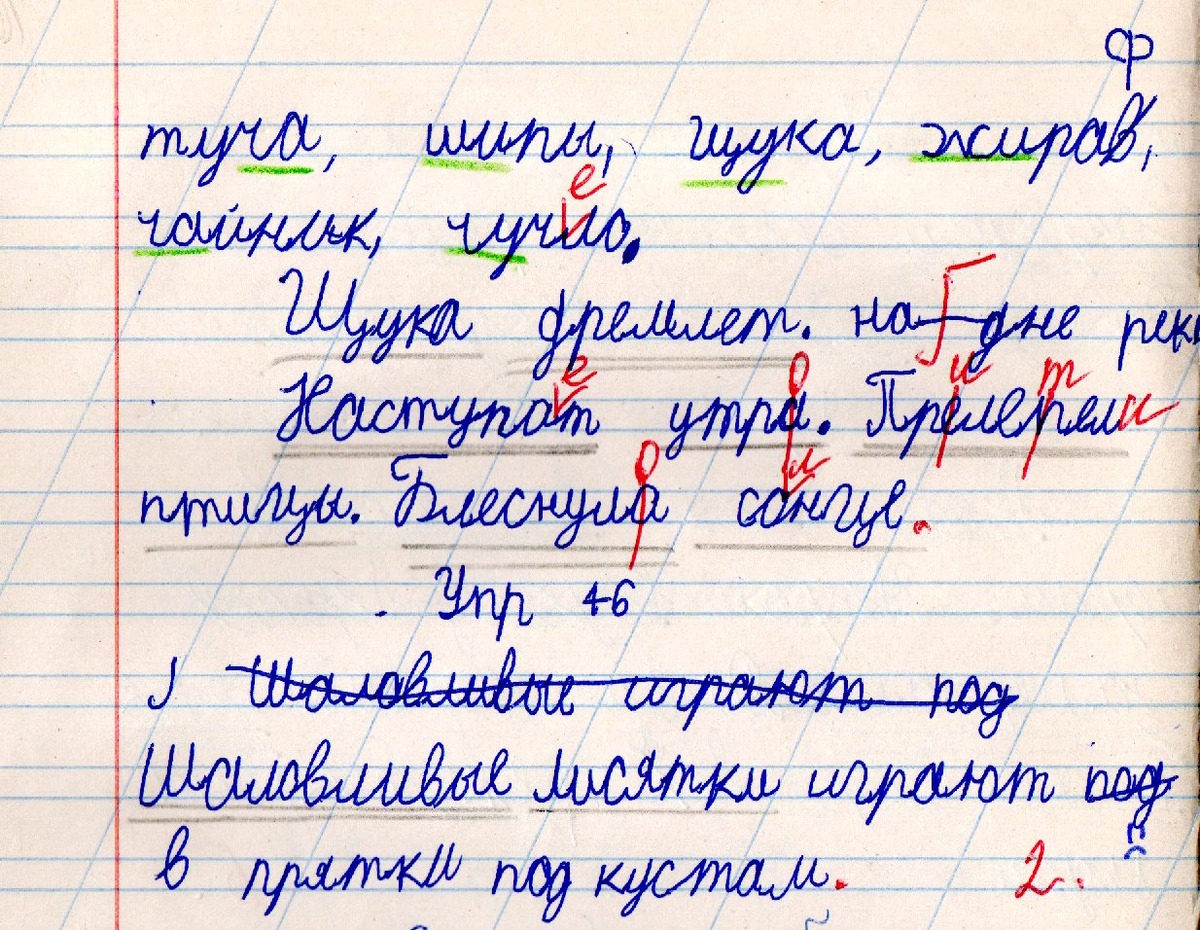 ф
туча, шипы, щука, жирав,
е
чайник, чучло.
Щука дремлет. на дне реки
е о и т
Наступат утра. Прелерели
о л
птицы. Блеснула сонце.
Упр 46
1 Шаловливые играют под
Шаловливые лисятки играют под
в прятки под кустам. 2.